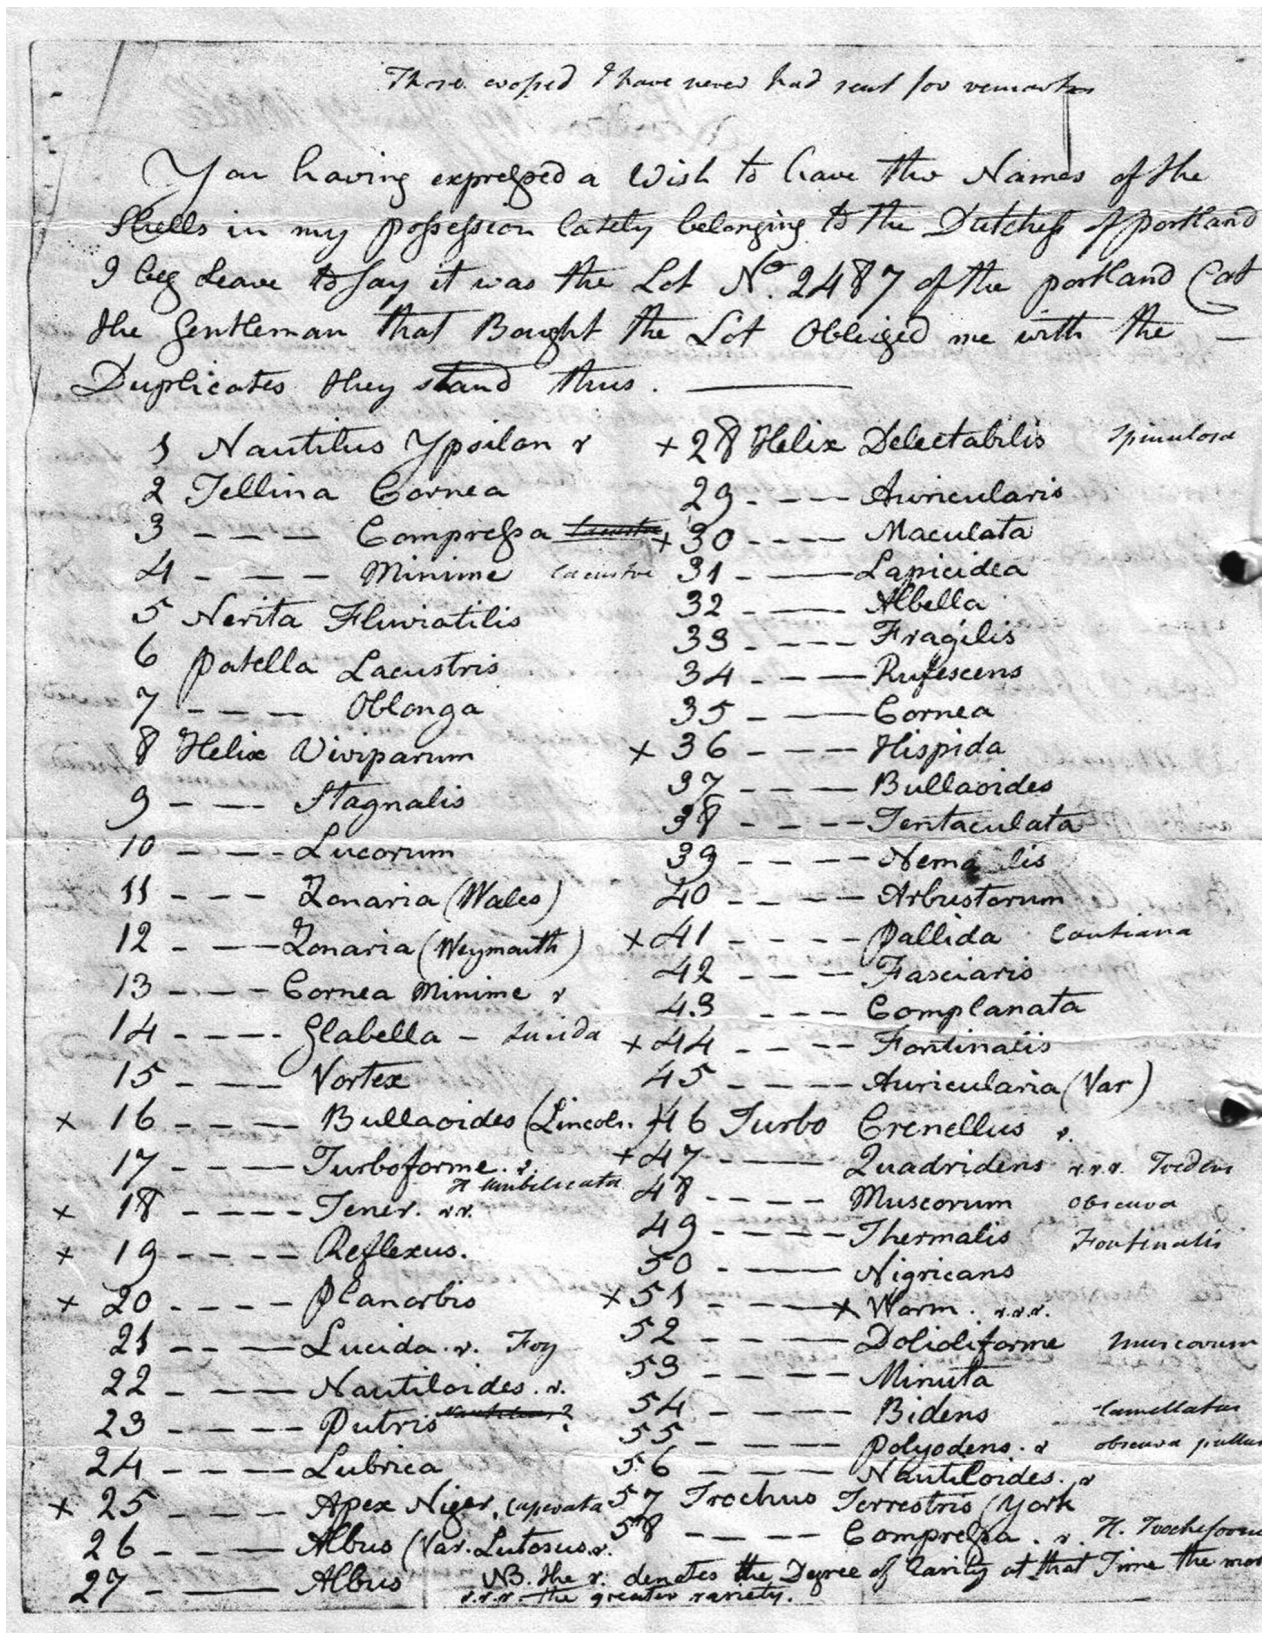 Those crossed I have never had sent for remarks
You having expressed a Wish to have the Names of the
Shells in my possession lately belonging to the Dutchess of portland
I beg Leave to say it was the Lot No. 2487 of the portland Cat
the Gentleman that Bought the Lot Obliged me with the —
Duplicates they stand thus. ———
1 Nautilus Ypsilon r
2 Tellina Cornea
3 - - - Compressa
4 - - - Minime lacustre
5 Nerita Fluviatilis
6 patella Lacustris
7 - - - - Oblonga
8 Helix Viviparum
9 - - - Stagnalis
10 - - - Lucorum
11 - - - Zonaria (Wales)
12 - - - Zonaria (Weymouth)
13 - - - Cornea Minime r
14 - - - - Glabella - Lucida
15 - - - - Vortex
x 16 - - - - Bullaoides (Lincoln.)
17 - - - - Turboforme. r. H. Umbilicata
x 18 - - - - Tener. r.r.
x 19 - - - - Reflexus.
x 20 - - - - Planorbis
21 - - - - Lucida. r. Foy
22 - - - - Nautiloides. r.
23 - - - - Putris Nautileus?
24 - - - - Lubrica
x 25 - - - - Apex Niger.
26 - - - - Albus (Var. Lutosus. r.
27 - - - - Albus
x 28 Helix Delectabilis Spinulosa
29 - - - - Auricularis
x 30 - - - - Maculata
31 - - - - Lapicidea
32 - - - - Albella
33 - - - - Fragilis
34 - - - - Rufescens
35 - - - - Cornea
x 36 - - - - Hispida
37 - - - - Bullaoides
38 - - - - Tentaculata
39 - - - - Nemo lis
40 - - - - Arbustorum
x 41 - - - - Pallida Cantiana
42 - - - - Fasciaris
43 - - - - Complanata
x 44 - - - - Fontinalis
45 - - - - Auricularia (Var)
46 Turbo Crenellus r.
x 47 - - - - Quadridens r.r.r. Tridens
48 - - - - Muscorum obscura
49 - - - - Thermalis Fontinalis
50 - - - - Nigricans
x 51 - - - - x Worm. r.r.r.
52 - - - - Dolioliforme muscorum
53 - - - - Minuta
54 - - - - Bidens lamellatus
55 - - - - Polyodens. r obscura pullus
56 - - - - Nautiloides. r
57 Trochus Terrestris (York
58 - - - - Compressa. r. H. Trocheform
NB. the r. denotes the Degree of Rarity at that Time the mor
r.r.r. the greater rariety.